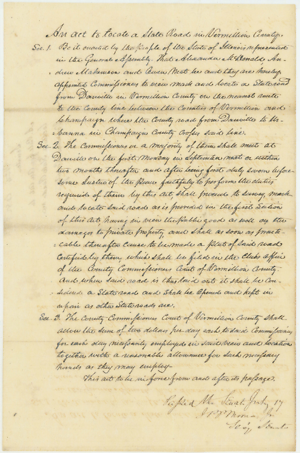 An act to locate a State Road in Vermillion County.
Sec. 1. Be it enacted by the people of the State of Illinois represented
in the General Assembly That Alexander McDonald, An-
drew Makemson and Owen West be and they are hereby
appointed Commissioners to view mark and locate a State road
from Danville in Vermilion County on the nearest route
to the County line between the Counties of Vermilion and
Champaign where the County road from Danville to Ur-
banna in Champaign County crosses said line.
Sec. 2. The Commissioners or a majority of them shall meet at
Danville on the first Monday in September next or within
two months thereafter and after being first duly sworn before
some Justice of the Peace faithfully to perform the duties
required of them by this act shall proceed to survey mark
and locate said road as is provided in the first section
of this act having in view the public good as well as the
damages to private property and shall as soon as practi-
cable thereafter cause to be made a plat of said road
certified by them, which shall be filed in the Clerks office
of the County Commissioners Court of Vermilion County
and when said road is thus laid out it shall be con-
sidered a State road and shall be opened and kept in
repair as other State roads are.
Sec. 3. The County Commissioners Court of Vermilion County shall
allow the sum of two dollars per day each to said Commissioners
for each day necessarily employed in said view and location
together with a reasonable allowance for such necessary
hands as they may employ.
This act to be in force from and after its passage.
the Senate July 17
Secy Senate